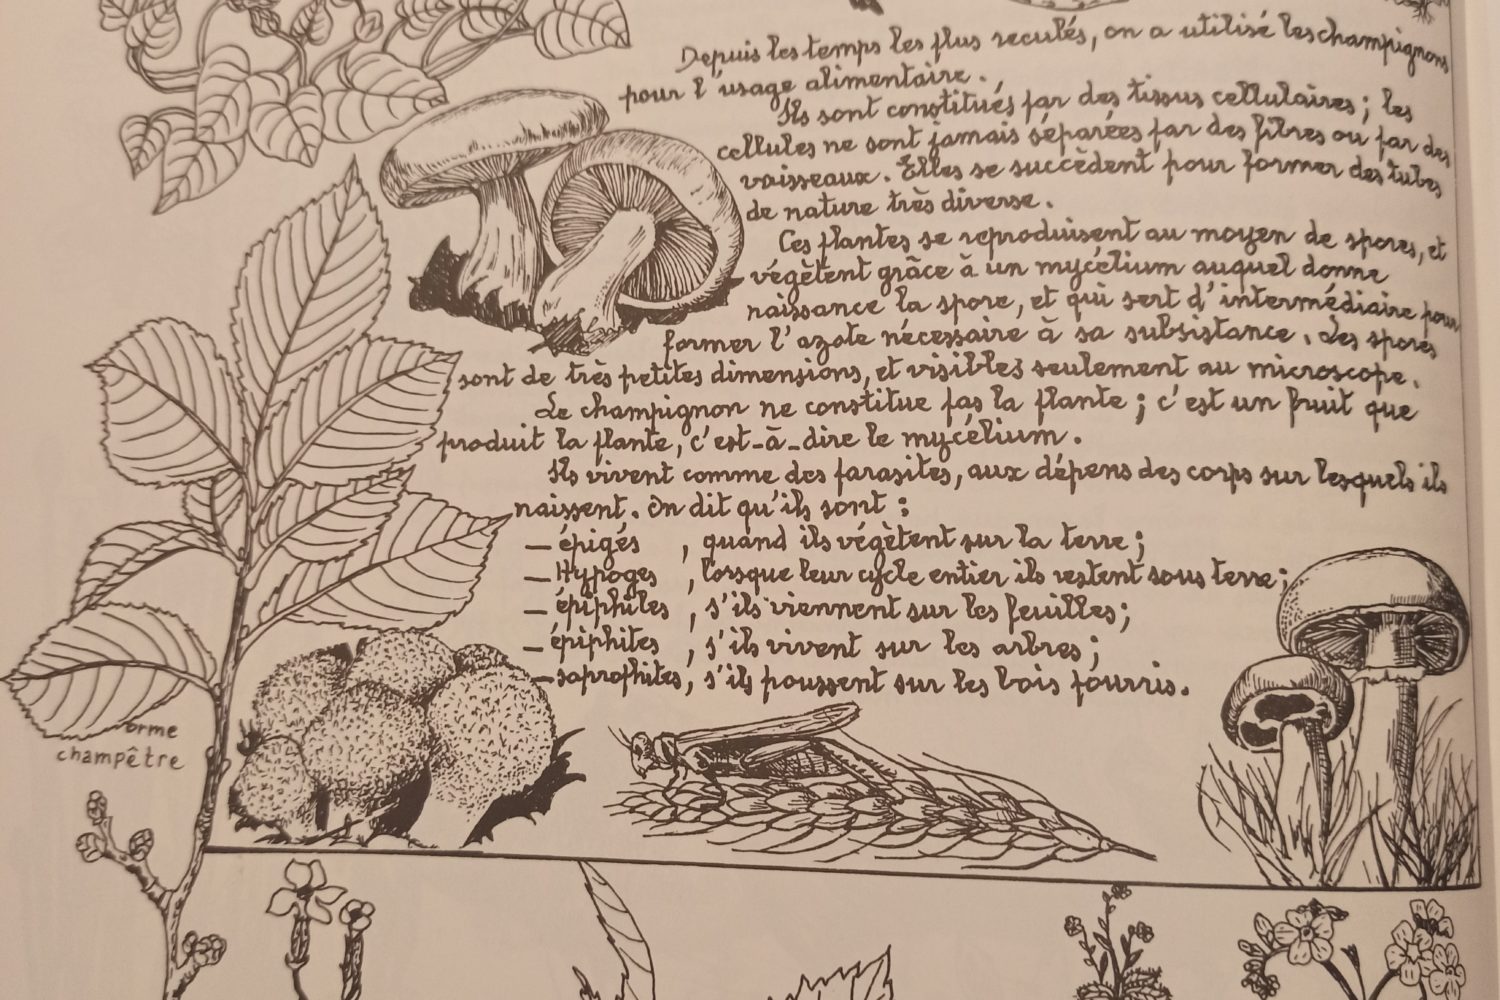 Depuis les temps les plus reculés, on a utilisé les champignons
pour l'usage alimentaire.
Ils sont constitués par des tissus cellulaires ; les
cellules ne sont jamais séparées par des fibres ou par des
vaisseaux. Elles se succèdent pour former des tubes
de nature très diverse.
Ces plantes se reproduisent au moyen de spores, et
végètent grâce à un mycélium auquel donne
naissance la spore, et qui sert d'intermédiaire pour
former l'azote nécessaire à sa subsistance. Les spores
sont de très petites dimensions, et visibles seulement au microscope.
Le champignon ne constitue pas la plante ; c'est un fruit que
produit la plante, c'est-à-dire le mycélium.
Ils vivent comme des parasites, aux dépens des corps sur lesquels ils
naissent. On dit qu'ils sont :
— épigés , quand ils végètent sur la terre ;
— Hypoges , lorsque leur cycle entier ils restent sous terre ;
— épiphiles , s'ils viennent sur les feuilles ;
— épiphites , s'ils vivent sur les arbres ;
— saprophites, s'ils poussent sur les bois pourris.
orme
champêtre